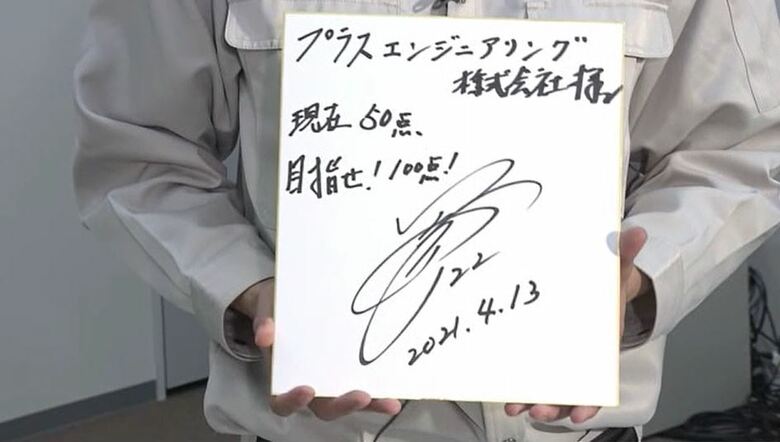 プラスエンジニアリング
株式会社様
現在50点、
目指せ!100点!
22
2021.4.13